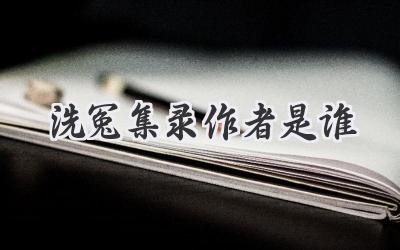 洗冤集录作者是谁